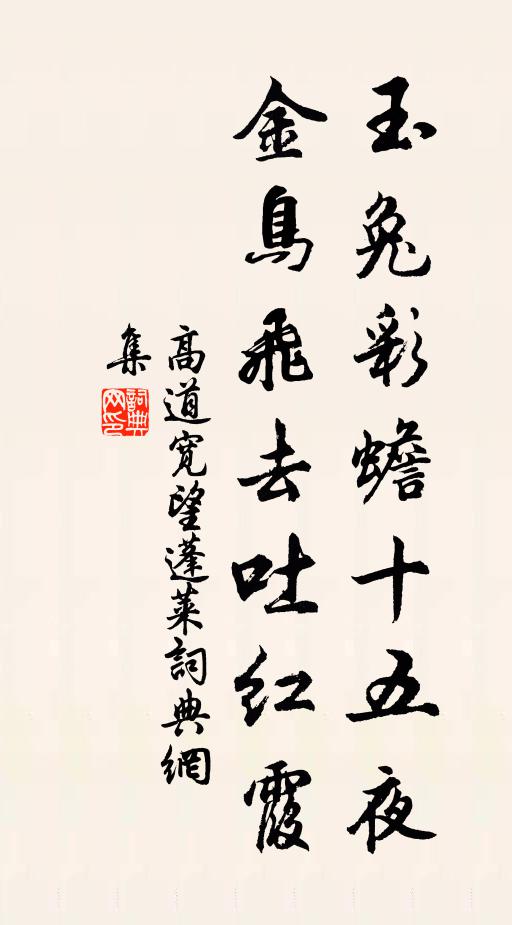 玉兔彩蟾十五夜
金烏飛去吐紅霞
高道寬望蓬萊詞典網
集
詞典
网印